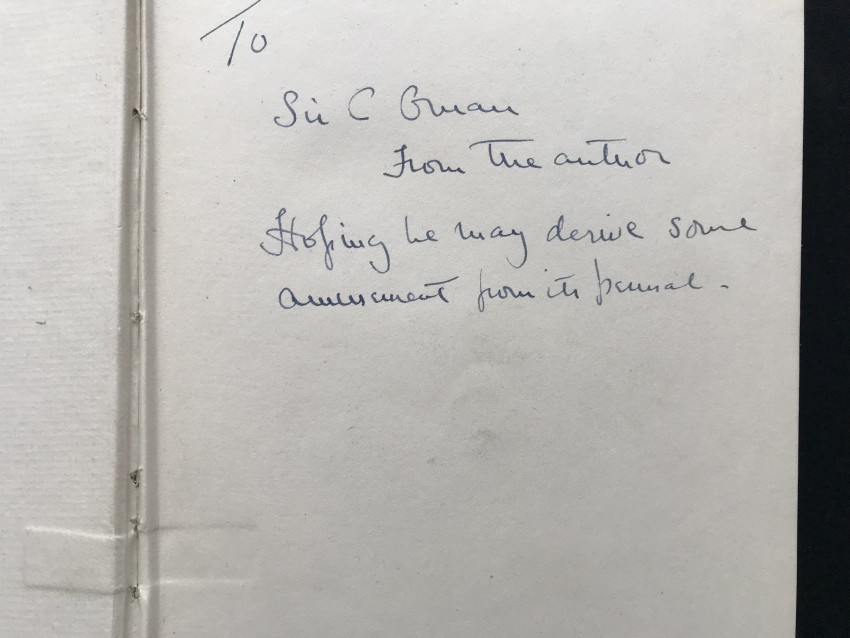 To
Sir C Oman
From the author
Hoping he may derive some
amusement from its perusal -